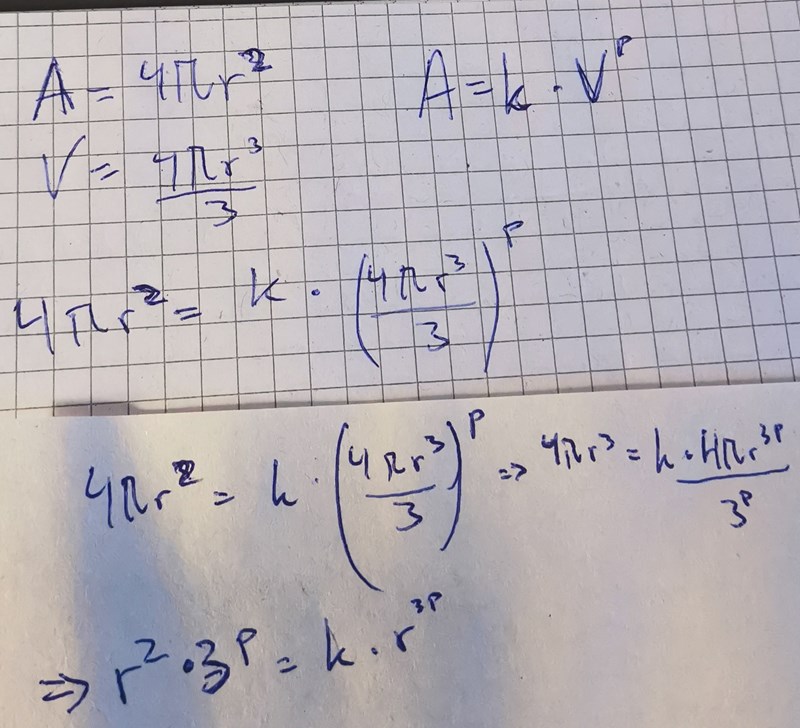 A = 4πr²    A = k · V^p
V = 4πr³/3
4πr² = k · (4πr³/3)^p
4πr² = k · (4πr³/3)^p ⇒ 4πr³ = k · 4πr^3p/3^p
⇒ r² · 3^p = k · r^3p